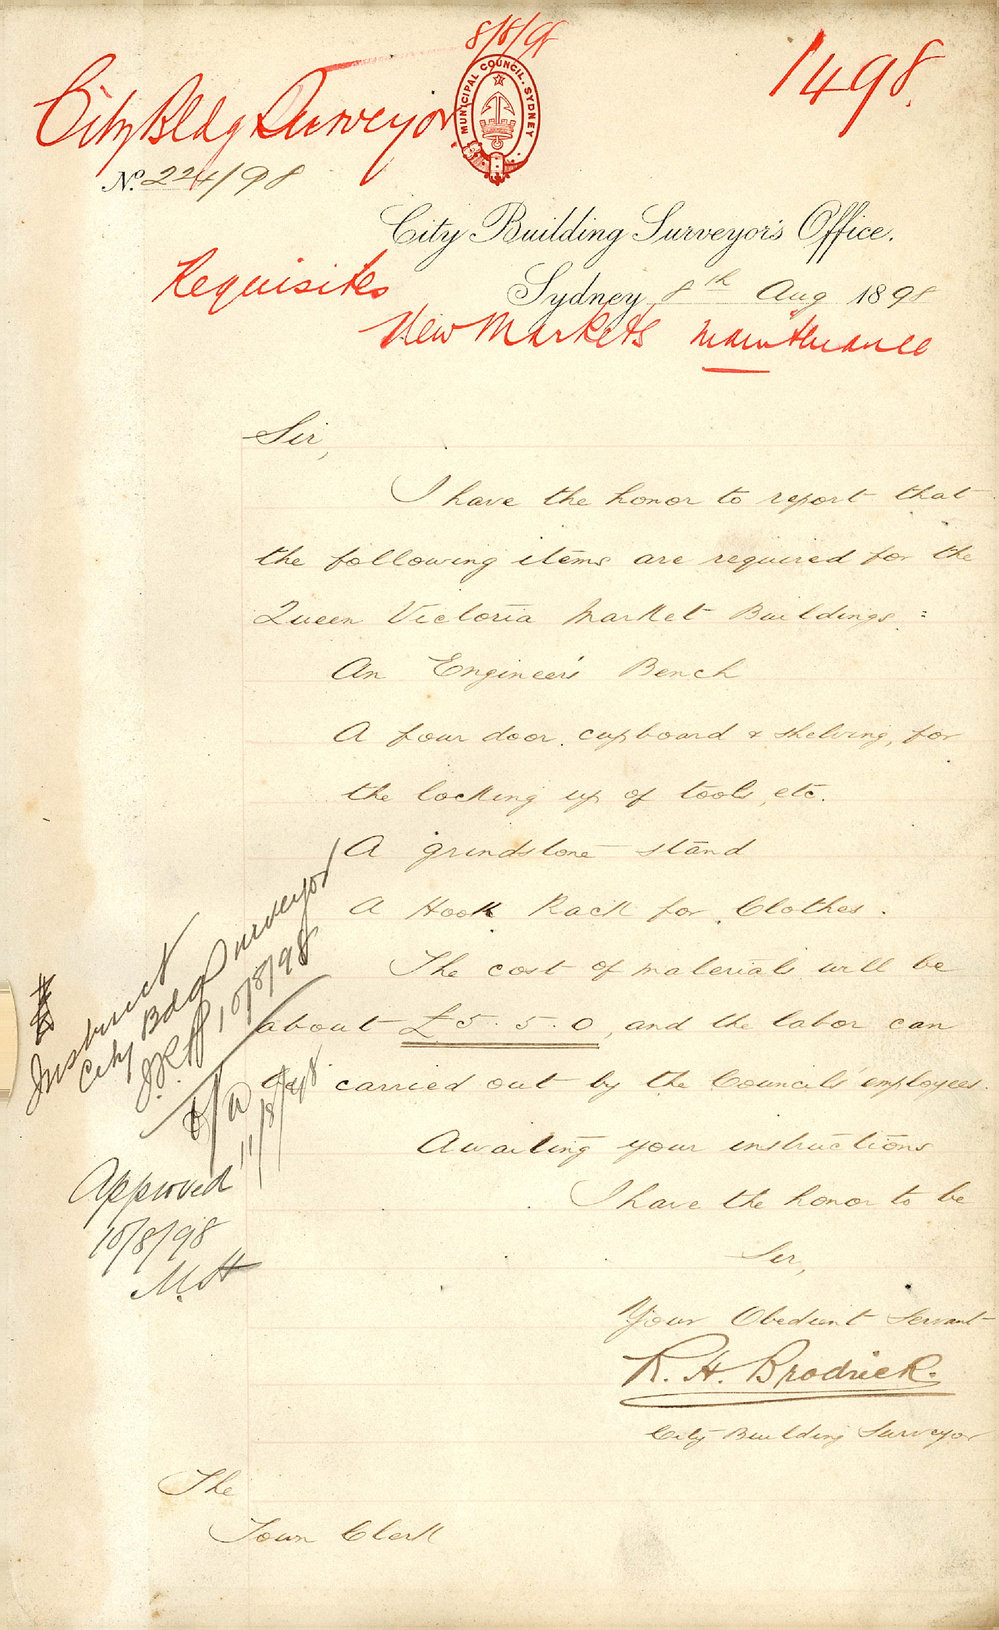 8/8/98
1498.
City Bldg Surveyor
MUNICIPAL COUNCIL. SYDNEY
No. 224/98
City Building Surveyor's Office.
Requisites
Sydney, 8th Aug 1898
New Markets maintenance
Sir,
I have the honor to report that
the following items are required for the
Queen Victoria Market Buildings :
An Engineer's Bench
A four door cupboard & shelving, for
the locking up of tools, etc.
A grindstone stand
A Hook Rack for Clothes.
The cost of materials will be
about £5. 5. 0, and the labor can
be carried out by the Council's employees.
Awaiting your instructions
I have the honor to be
Sir,
Your Obedient Servant
R. H. Brodrick.
City Building Surveyor
The
Town Clerk
Instruct
City Bdg Surveyor
10/8/98
11/8/98
Approved
10/8/98